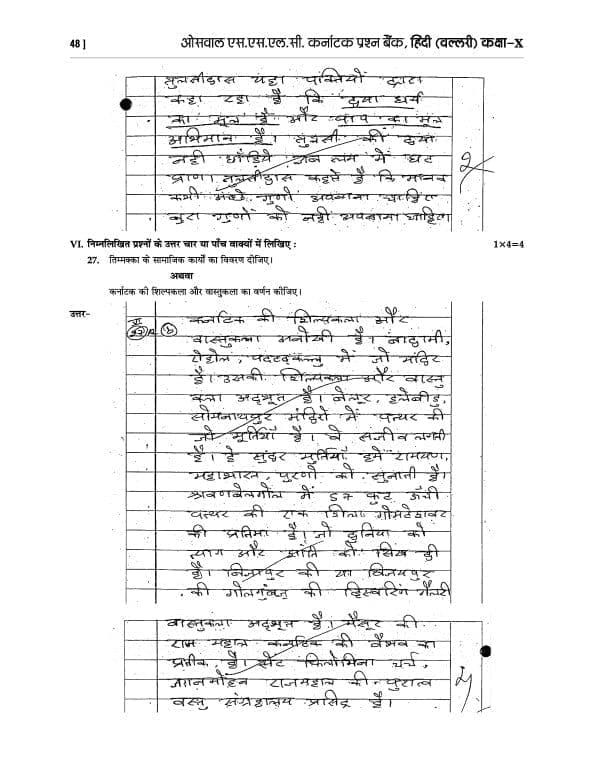 48 ]
ओसवाल एस.एस.एल.सी. कर्नाटक प्रश्न बैंक, हिंदी (वल्लरी) कक्षा-X
तुलसीदास यहा पंक्तियों द्वारा
कहा रहा है कि दया धर्म
का मूल है और पाप का मूल
अभिमान है। तुलसी की दया
नही छाँडिये जब लग में घट
प्राण। तुलसीदास कहते है कि मानव
कभी अच्छे गुणो अपनाना चाहिए
बुरा गुणों को नही अपनाना चाहिए।
2
VI. निम्नलिखित प्रश्नों के उत्तर चार या पाँच वाक्यों में लिखिए :
1×4=4
27. तिम्मक्का के सामाजिक कार्यों का विवरण दीजिए।
अथवा
कर्नाटक की शिल्पकला और वास्तुकला का वर्णन कीजिए।
उत्तर-
कर्नाटक की शिल्पकला और
वास्तुकला अनोखी है। बादामी,
ऐहोल, पट्टदकल्लु में जो मंदिर
है। उसकी शिल्पकला और वास्तु
कला अदभूत है। बेलूर, हलेबीडु,
सोमनाथपुर मंदिरो में पत्थर की
जो मूर्तियाँ है। वे सजीव लगती
है। है सुंदर मूर्तियाँ हमे रामयण,
महाभारत, पुरणो की सुनाती है।
श्रवणबेलगोल में 57 फुट ऊँची
पत्थर की एक शिला गोमटेश्वर
की प्रतिमा है। जो दुनिया को
त्याग और शांति की सिख दी
है। बिजापुर की या विजयपुर
की गोलगुंबज की व्हिस्परिंग गैलरी
वास्तुकला अदभूत है। मैसूर की
राज महाल कर्नाटक की वैभव का
प्रतीक है। सेंट फिलोमिना चर्च,
जगनमोहन राजमहाल की पुरातत्व
वस्तु संग्रहालय प्रसिद्ध है।